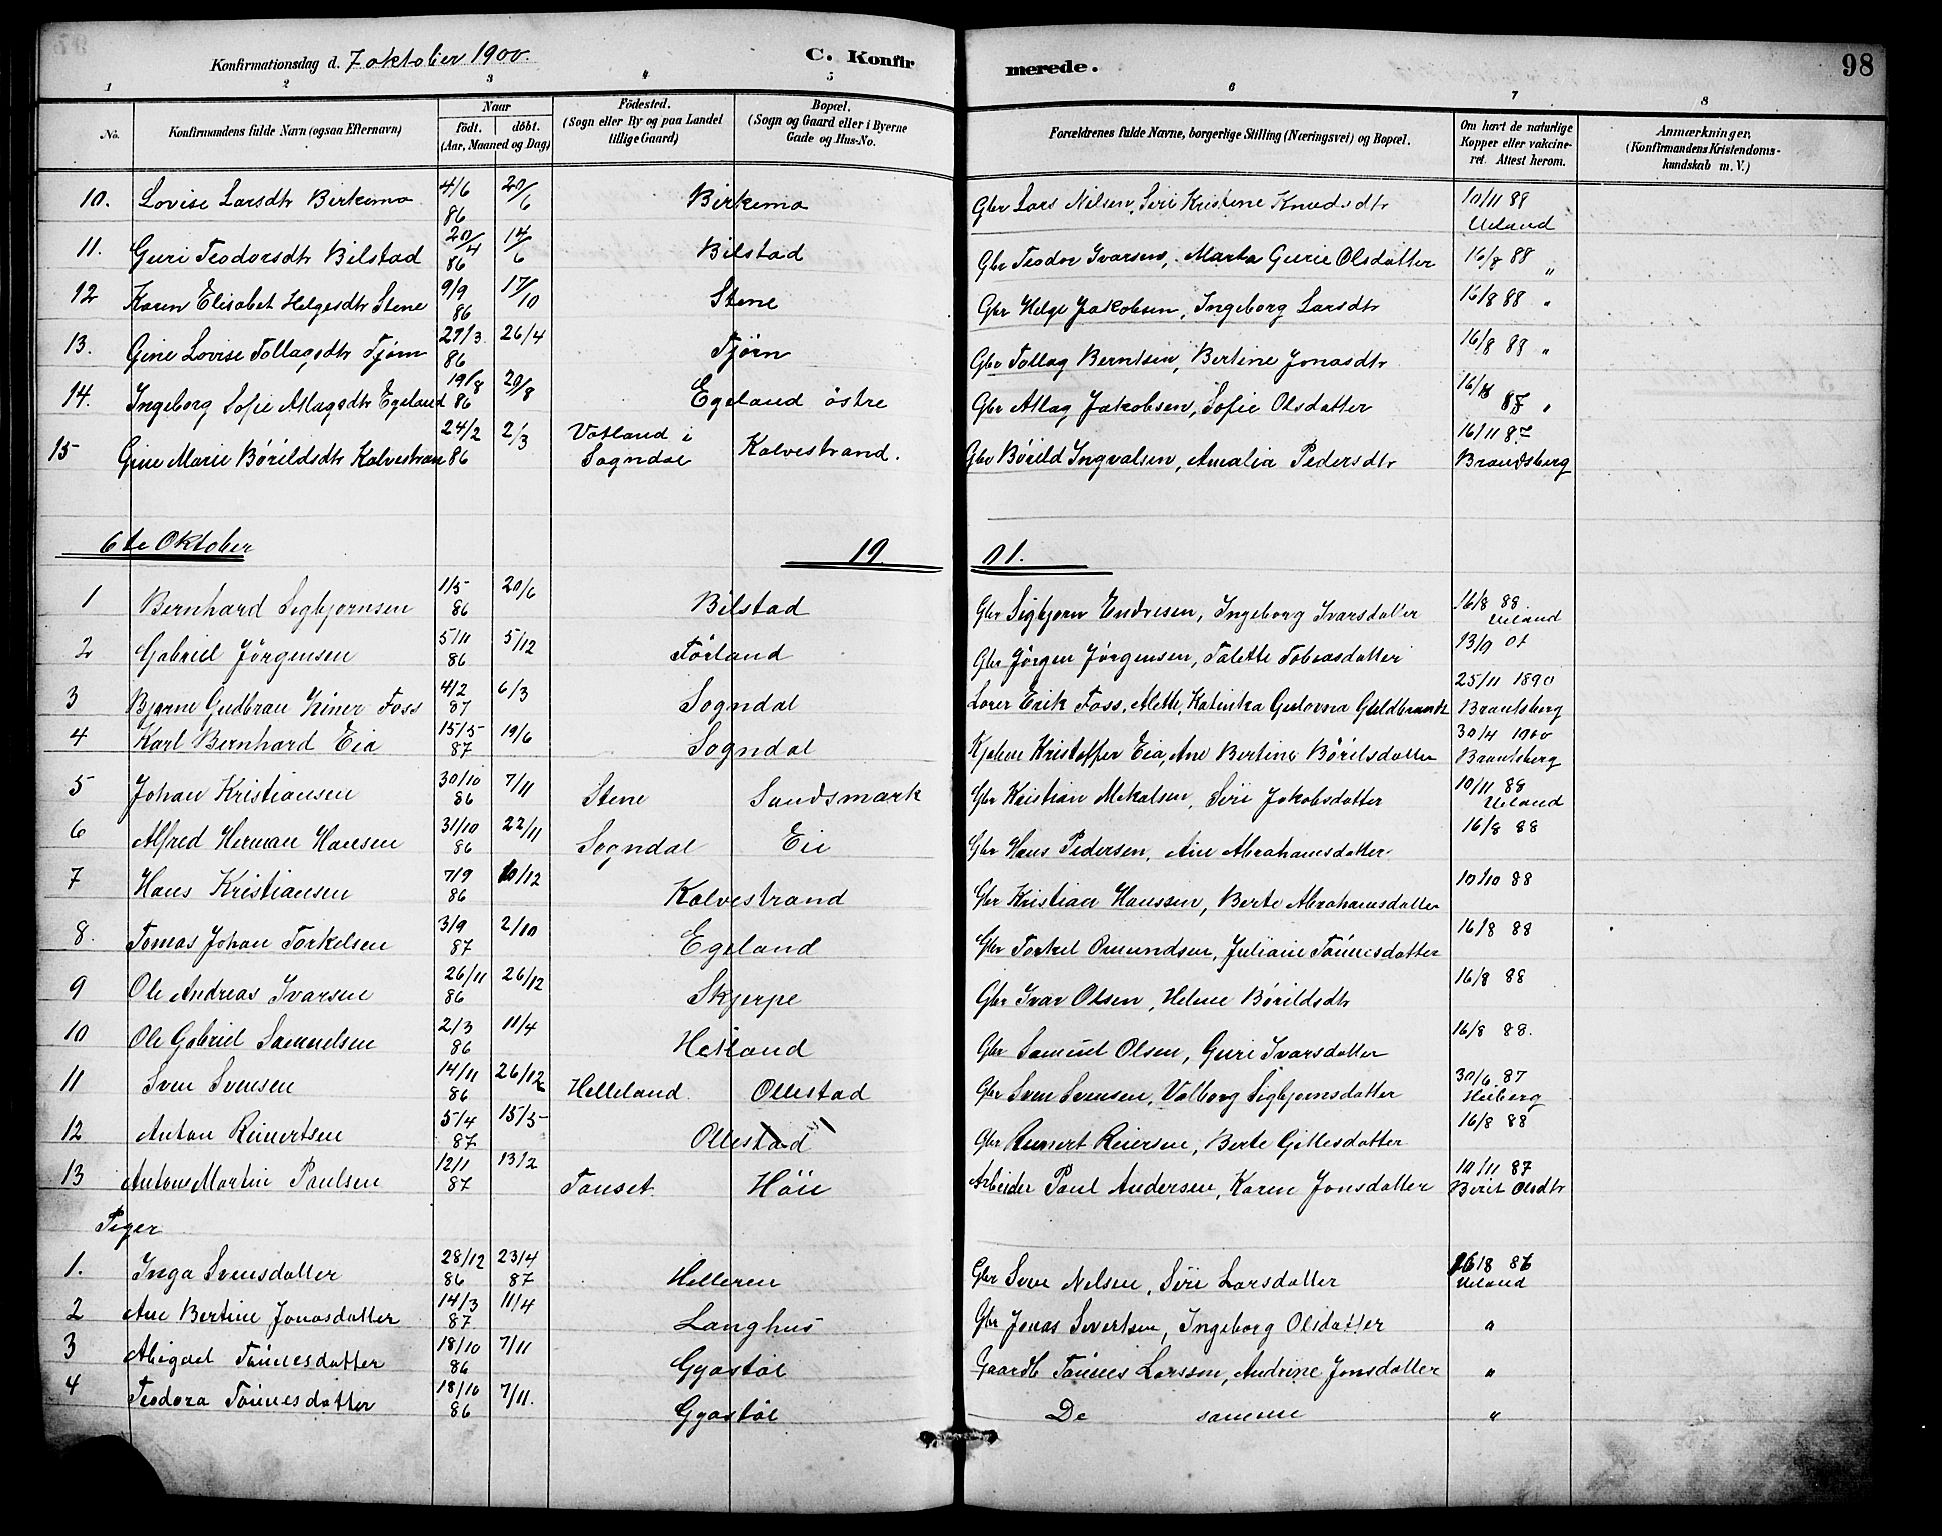 98
Konfirmationsdag d. 7 oktober 1900. C. Konfirmerede.
1 2 3 4 5 6 7 8
No. Konfirmandens fulde Navn (ogsaa Efternavn) Naar født. døbt. (Aar, Maaned og Dag) Födested. (Sogn eller By og paa Landet tillige Gaard) Bopæl. (Sogn og Gaard eller i Byerne Gade og Hus-No. Forældrenes fulde Navne, borgerlige Stilling (Næringsvei) og Bopæl. Om havt de naturlige Kopper eller vakcineret. Attest herom. Anmærkninger, (Konfirmandens Kristendomskundskab m. V.)
10. Lovise Larsdtr Birkemo 4/6 86 20/6 Birkemo Gbr Lars Nilsen, Siri Kristine Knudsdtr 10/11 88 Ueland
11. Guri Teodorsdtr Bilstad 20/4 86 14/6 Bilstad Gbr Teodor Ivarsen, Marta Gurie Olsdatter 16/8 88 "
12 Karen Elisabet Helgesdtr Stene 9/9 86 17/10 Stene Gbr Helge Jakobsen, Ingeborg Larsdtr 16/8 88 "
13. Gine Lovise Tollagsdtr Tjørn 27/3 86 26/4 Tjörn Gbr Tollag Berntsen, Bertine Jonasdtr 16/8 88 "
14. Ingeborg Sofie Atlagsdtr Egeland 19/8 86 29/8 Egeland östre Gbr Atlag Jakobsen, Sofie Olsdatter 16/8 87 "
15 Gine Marie Børildsdtr Kalvestran 24/2 86 2/3 Vatland i Sogndal Kalvestrand. Gbr Börild Ingvalsen, Amalia Pedersdtr 16/11 87 Brandsberg
6te Oktober 19 01.
1 Bernhard Sigbjørnsen 1/5 86 20/6 Bilstad Gbr Sigbjørn Endresen, Ingeborg Ivarsdatter 16/8 88. Ueland
2 Gabriel Jørgensen 5/11 86 5/12 Førland Gbr Jörgen Jörgensen, Talette Tobiasdatter 13/9 01
3 Bjarne Gudbran Einer Foss 4/2 87 6/3 Sogndal Lærer Erik Foss, Mette Katinka Gulovna Guldbrands 25/11 1890 Brandsberg
4 Karl Bernhard Eia 15/5 87 19/6 Sogndal Kristoffer Eia, Ane Bertine Börilsdatter 30/4 1900 Brandsberg
5 Johan Kristiansen 30/10 86 7/11 Stene Sandsmark Gbr Kristian Mekalsen, Siri Jakobsdatter 10/11 88 Ueland
6 Alfred Herman Hansen 31/10 86 22/11 Sogndal Eie Gbr Hans Pedersen, Ane Abrahamsdatter 16/8 88
7 Hans Kristiansen 7/9 86 10/12 Kalvestrand Gbr Kristian Hanssen, Berte Abrahamsdatter 10/10 88
8. Tomas Johan Torkelsen 3/9 87 2/10 Egeland Gbr Torkel Omundsen, Juliane Tönnesdatter 16/8 88
9 Ole Andreas Ivarsen 26/11 86 26/12 Skjerpe Gbr Ivar Olsen, Helene Børildsdtr 16/8 88
10 Ole Gabriel Samuelsen 2/3 86 11/4 Hetland Gbr Samuel Olsen, Guri Ivarsdatter 16/8 88.
11 Sven Svensen 14/11 86 26/12 Helleland Ollestad Gbr Sven Svensen, Valborg Sigbjørnsdatter 30/6 87 Heiberg
12 Anton Reinertsen 5/4 87 15/5 Ollestad Gbr Reinert Reiersen, Berte Gillesdatter 16/8 88
13 Martin Paulsen 12/1 87 13/2 Tonset Höie Arbeider Paul Andersen, Karen Jonsdatter 10/11 87 Berit Olsdtr
Piger
1. Inga Svensdatter 28/12 86 23/4 87 Helleren Gbr Sven Nilsen, Siri Larsdatter 16/8 86 Ueland
2 Ane Bertine Jonasdatter 14/3 87 11/4 Langhus Gbr Jonas Sivertsen, Ingeborg Olsdatter "
3 Abigael Tönnesdatter 18/10 86 7/11 Gyastøl Gaardb Tönnes Larsson, Andrine Jonsdatter "
4 Teodora Tönnesdatter 18/10 86 7/11. Gyastøl De samme "